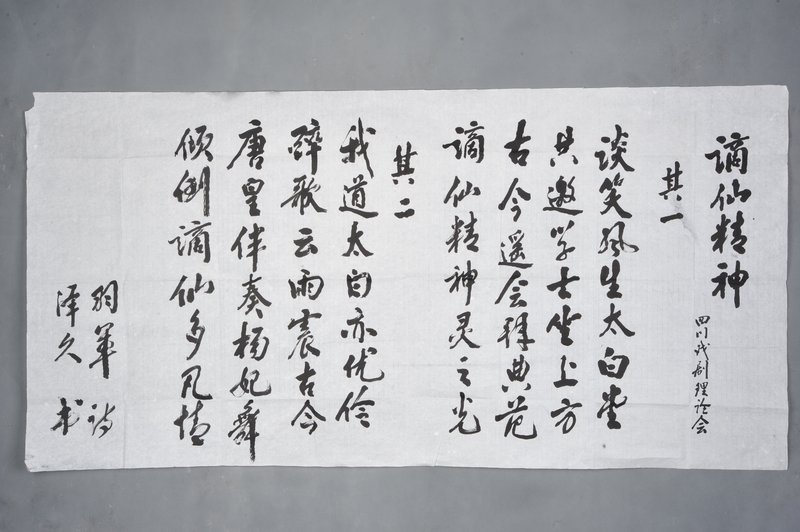 谪仙精神
四川戏剧理论会
其一
谈笑风生太白堂
共邀学士坐上方
古今遥会拜典范
谪仙精神灵之光
其二
我道太白亦优伶
醉歌云雨震古今
唐皇伴奏杨妃舞
倾倒谪仙多凡情
羽军诗
泽久书